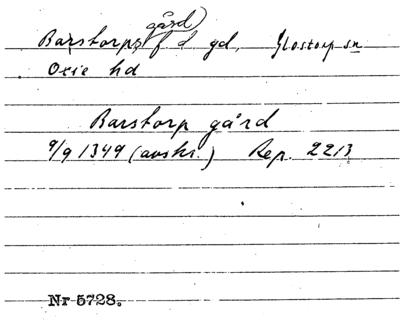 gård)
Barstorps, f d gd, Glostorp sn
Oxie hd
Barstorp gård
9/9 1349 (avskr.) Rep. 2213
Nr 5728.